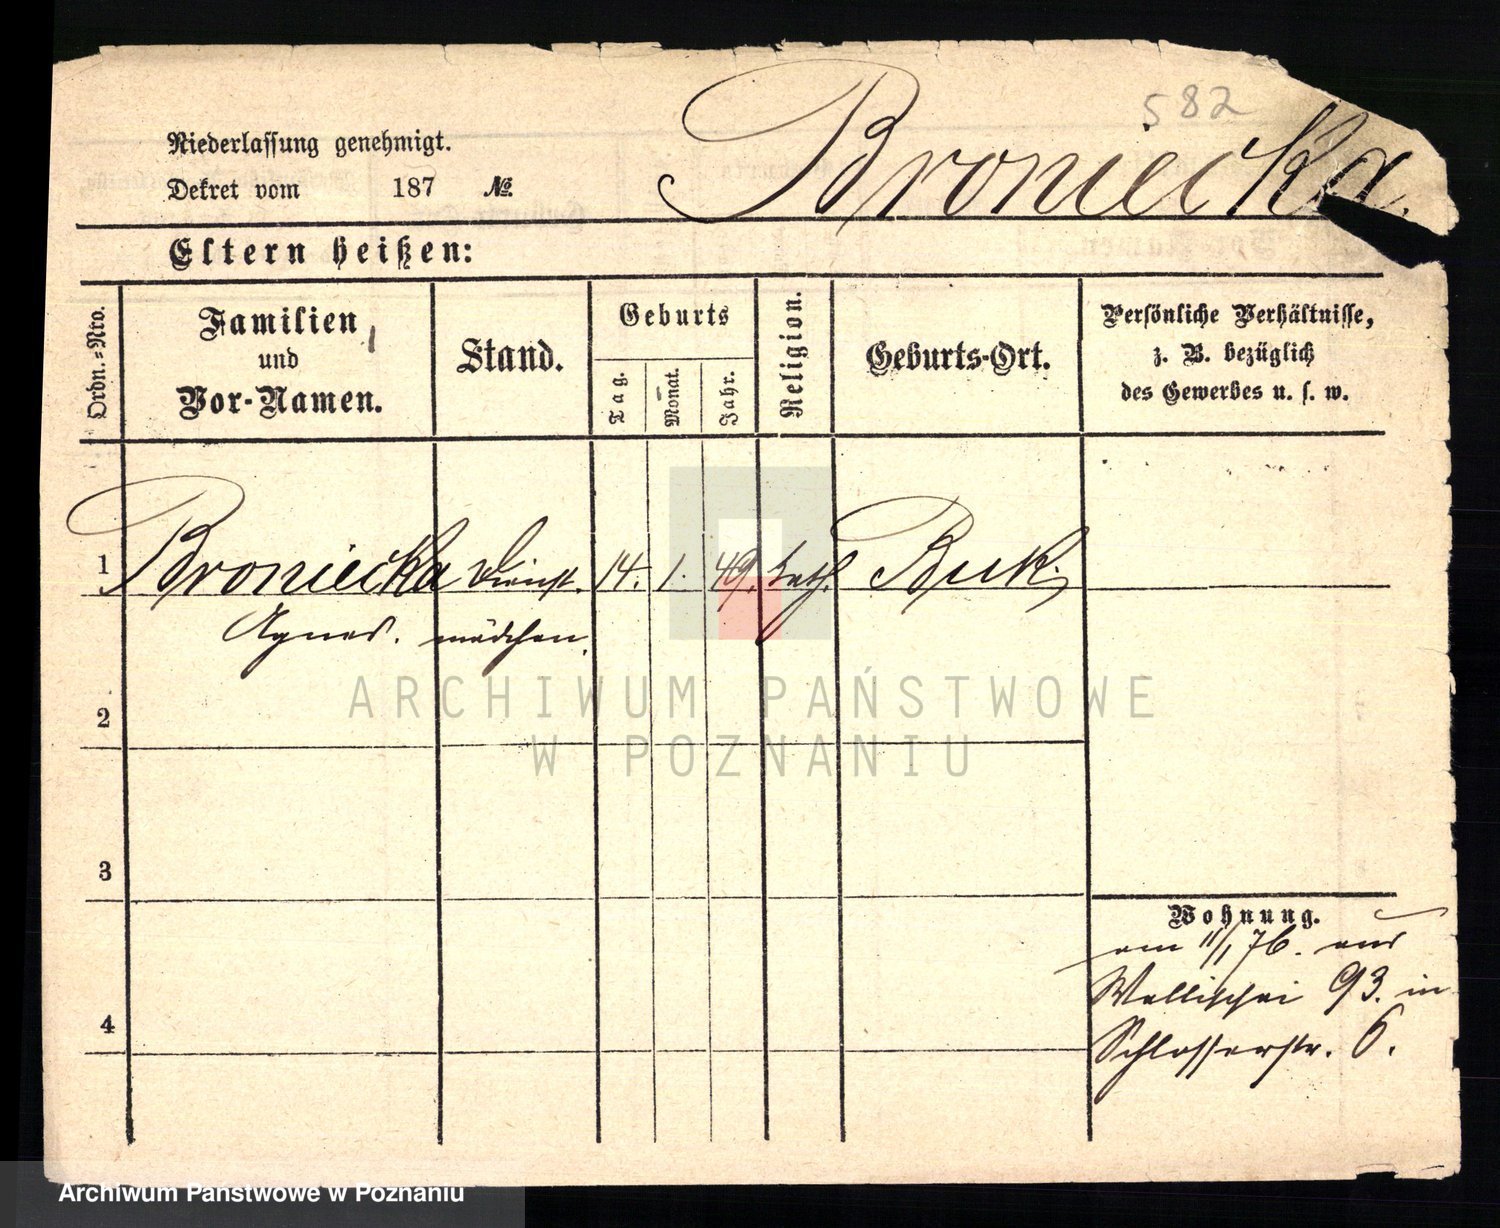 582
Broniecka.
Niederlassung genehmigt.
Dekret vom 187 №.
Eltern heißen:
Ordn.=Nro.
Familien
und
Vor-Namen.
Stand.
Geburts
Tag.
Monat.
Jahr.
Religion.
Geburts-Ort.
Persönliche Verhältnisse,
z. B. bezüglich
des Gewerbes u. s. w.
1 Broniecka Dienst. 14. 1. 49. kath. Buk.
Agnes. mädchen.
2
3
4
Wohnung.
am 11/1 76. aus
Wallischei 93. in
Schlosserstr. 6.
ARCHIWUM PAŃSTWOWE
W POZNANIU
Archiwum Państwowe w Poznaniu